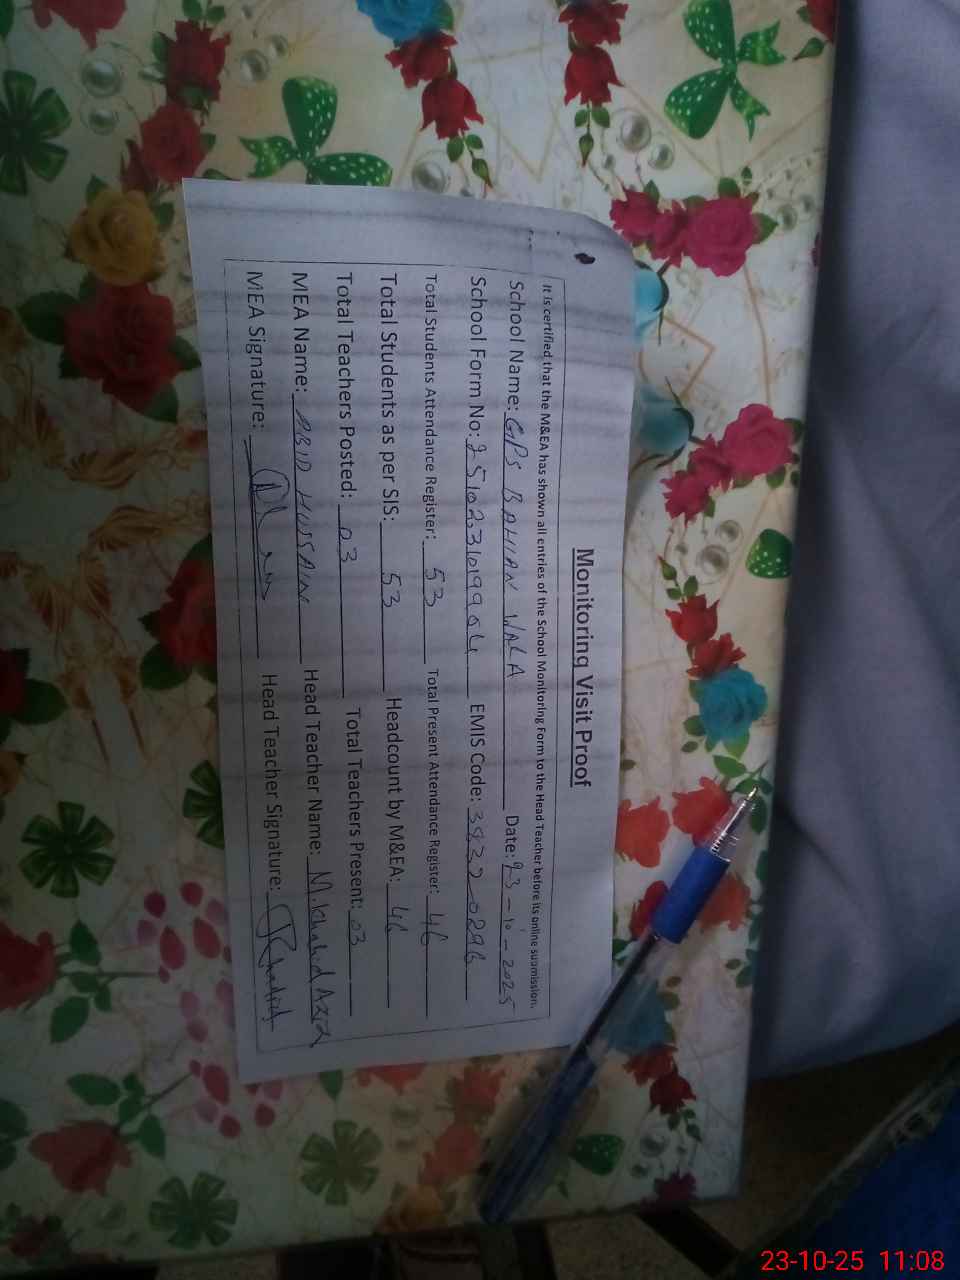 Monitoring Visit Proof
It is certified that the M&EA has shown all entries of the School Monitoring Form to the Head Teacher before its online submission.
School Name: GPS BAHIAN WALA Date: 23-10-2025
School Form No: EMIS Code:
Total Students Attendance Register: 53 Total Present Attendance Register: 46
Total Students as per SIS: 53 Headcount by M&EA: 46
Total Teachers Posted: 03 Total Teachers Present: 03
MEA Name: ABID HUSSAIN Head Teacher Name: M.Khalid Aziz
MEA Signature: Head Teacher Signature:
23-10-25 11:08